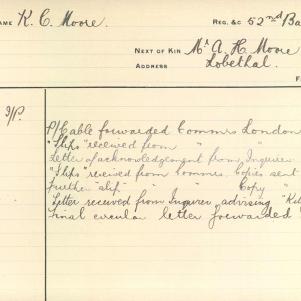 NAME K. C. Moore.
REG. &C 52nd Ba
NEXT OF KIN Mr A. H. Moore
ADDRESS Lobethal.
I/P.
P/Cable forwarded Commrs London
"Slips" received from " "
Letter of acknowledgement from Inquirer
"Slips" received from Commrs. Copies sent
further "slip" " " Copy "
Letter received from Inquirer advising "Kil
Final circular letter forwarded "